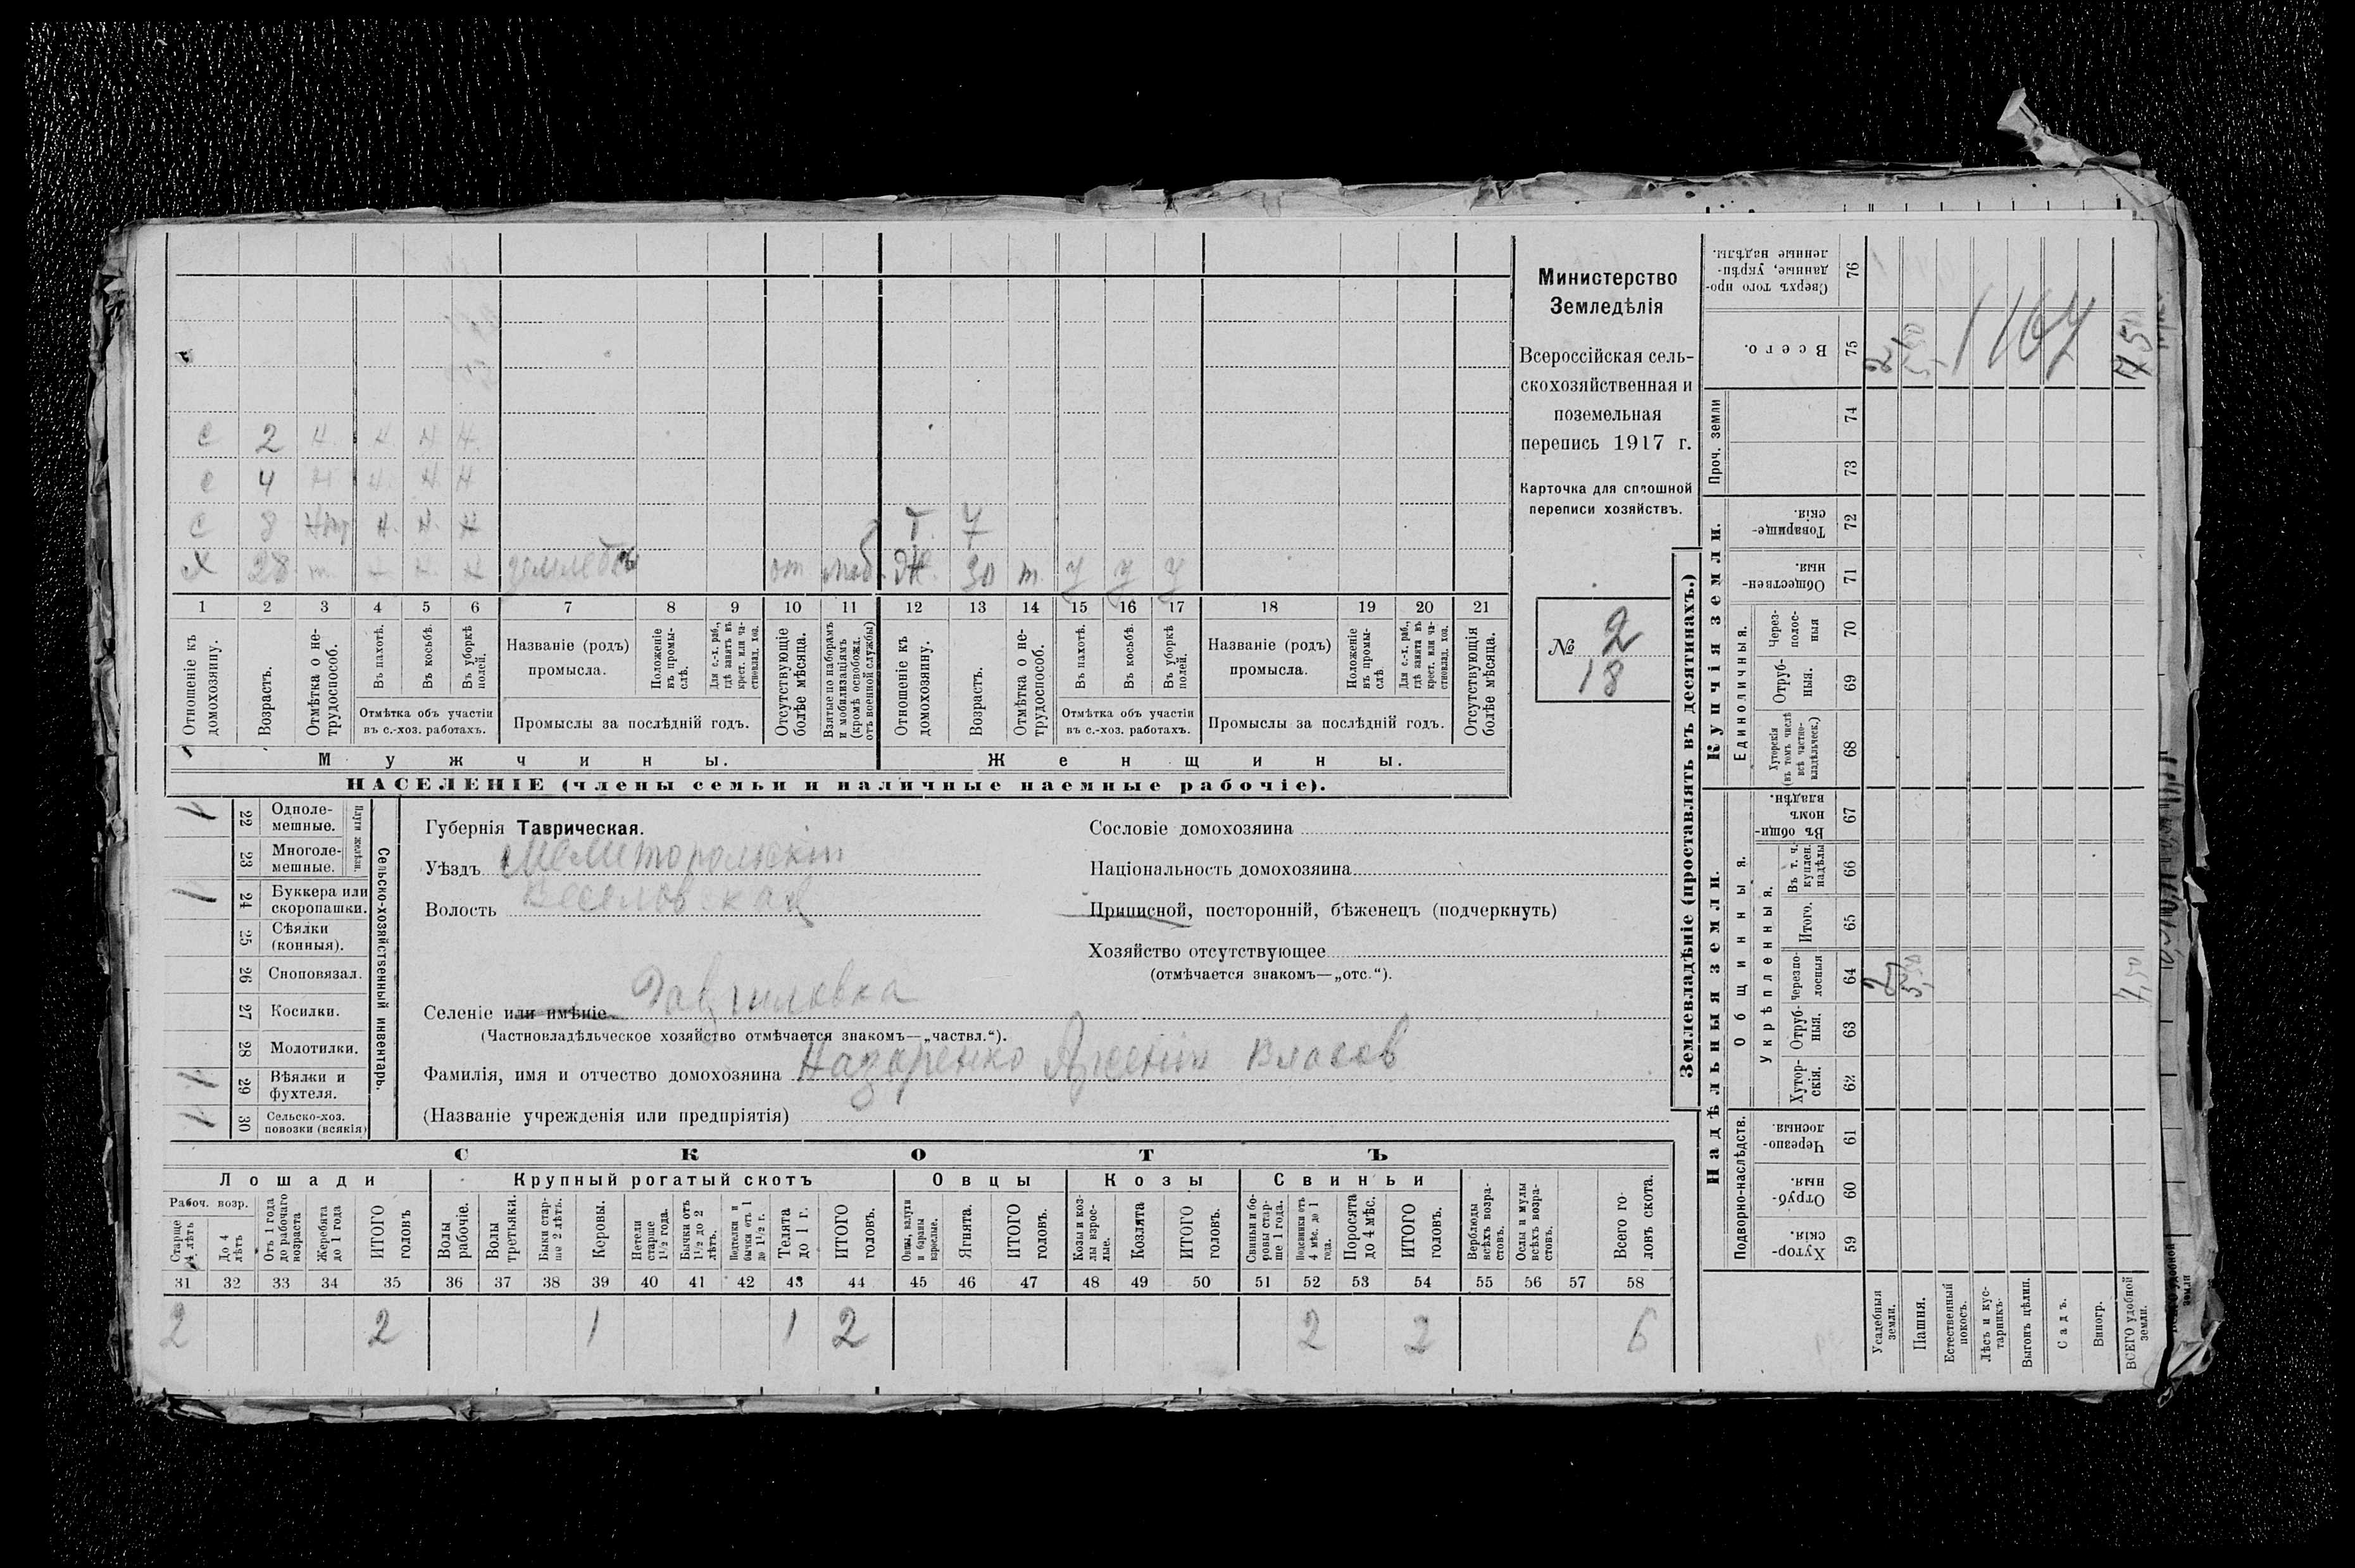 с 2 н. н. н. н.
с 4 н н. н. н
с 8 н. н. н
Т. 7
Х 28 т. н. н. н от моб. Ж. 30 т. у у у
1 2 3 4 5 6 7 8 9 10 11 12 13 14 15 16 17 18 19 20 21
Отношеніе къ домохозяину.
Возрастъ.
Отмѣтка о не-трудоспособ.
Въ пахотѣ.
Въ косьбѣ.
Въ уборкѣ полей.
Отмѣтка объ участіи въ с.-хоз. работахъ.
Названіе (родъ) промысла.
Положеніе въ промы-слѣ.
Для с.-х. раб., гдѣ занятъ въ крест. или ча-стновлад. хоз.
Промыслы за послѣдній годъ.
Отсутствующіе болѣе мѣсяца.
Взятые по наборамъ и мобилизаціямъ (кромѣ освобожд. отъ военной службы)
Отношеніе къ домохозяину.
Возрастъ.
Отмѣтка о не-трудоспособ.
Въ пахотѣ.
Въ косьбѣ.
Въ уборкѣ полей.
Отмѣтка объ участіи въ с.-хоз. работахъ.
Названіе (родъ) промысла.
Положеніе въ промы-слѣ
Для с.-х. раб., гдѣ занята въ крест. или ча-стновлад. хоз.
Промыслы за послѣдній годъ.
Отсутствующія болѣе мѣсяца.
Мужчины.
Женщины.
НАСЕЛЕНІЕ (члены семьи и наличные наемные рабочіе).
Министерство
Земледѣлія
Всероссійская сель-
скохозяйственная и
поземельная
перепись 1917 г.
Карточка для сплошной
переписи хозяйствъ.
№ 2
18
1 22 Одноле-мешные.
23 Многоле-мешные.
Плуги желѣзн.
1 24 Буккера или скоропашки.
25 Сѣялки (конныя).
26 Сноповязал.
27 Косилки.
28 Молотилки.
1 29 Вѣялки и фухтеля.
1 30 Сельско-хоз. повозки (всякія)
Сельско-хозяйственный инвентарь.
Губернія Таврическая.
Уѣздъ Мелитопольскій
Волость Веселовская
Селеніе или имѣніе Гавриловка
(Частновладѣльческое хозяйство отмѣчается знакомъ—„частвл.“).
Фамилія, имя и отчество домохозяина Назаренко Арсеній Власов
(Названіе учрежденія или предпріятія)
Сословіе домохозяина
Національность домохозяина
Приписной, посторонній, бѣженецъ (подчеркнуть)
Хозяйство отсутствующее
(отмѣчается знакомъ—„отс.“).
СКОТЪ
Лошади Крупный рогатый скотъ Овцы Козы Свиньи
Рабоч. возр.
Старше 4 лѣтъ
До 4 лѣтъ
Отъ 1 года до рабочаго возраста
Жеребята до 1 года
ИТОГО головъ
Волы рабочіе.
Волы третьяки.
Быки стар-ше 2 лѣтъ.
Коровы.
Нетели старше 1½ года.
Бычки отъ 1½ до 2 лѣтъ.
Подтелки и бычки отъ 1 до 1½ г.
Телята до 1 г.
ИТОГО головъ.
Овцы, валухи и бараны взрослые.
Ягнята.
ИТОГО головъ.
Козы и коз-лы взрос-лые.
Козлята
ИТОГО головъ.
Свиньи и бо-ровы стар-ше 1 года.
Подсвинки отъ 4 мѣс. до 1 года.
Поросята до 4 мѣс.
ИТОГО головъ.
Верблюды всѣхъ возра-стовъ.
Ослы и мулы всѣхъ возра-стовъ.
Всего го-ловъ скота.
31 32 33 34 35 36 37 38 39 40 41 42 43 44 45 46 47 48 49 50 51 52 53 54 55 56 57 58
2 2 1 1 2 2 2 6
Землевладѣніе (проставлять въ десятинахъ.)
Надѣльныя земли.
Купчія земли.
Проч. земли
Подворно-наслѣдств.
Общинныя.
Укрѣпленныя.
Единоличныя.
Сверхъ того про-данные, укрѣп-ленные надѣлы. 76
Всего. 75
74
73
Товарище-скія. 72
Обществен-ныя. 71
Через-полос-ныя 70
Отруб-ныя. 69
Хуторскія (въ томъ числѣ всѣ частно-владѣльческ.) 68
Въ общин-номъ владѣн. 67
Въ т. ч. куплен. надѣлы 66
Итого. 65
Черезпо-лосныя 64
Отруб-ныя. 63
Хутор-скія. 62
Черезпо-лосныя. 61
Отруб-ныя. 60
Хутор-скія. 59
1167
Усадебныя земли.
Пашня.
Естественный покосъ.
Лѣсъ и кус-тарникъ.
Выгонъ цѣлин.
Садъ.
Виногр.
ВСЕГО удобной земли.